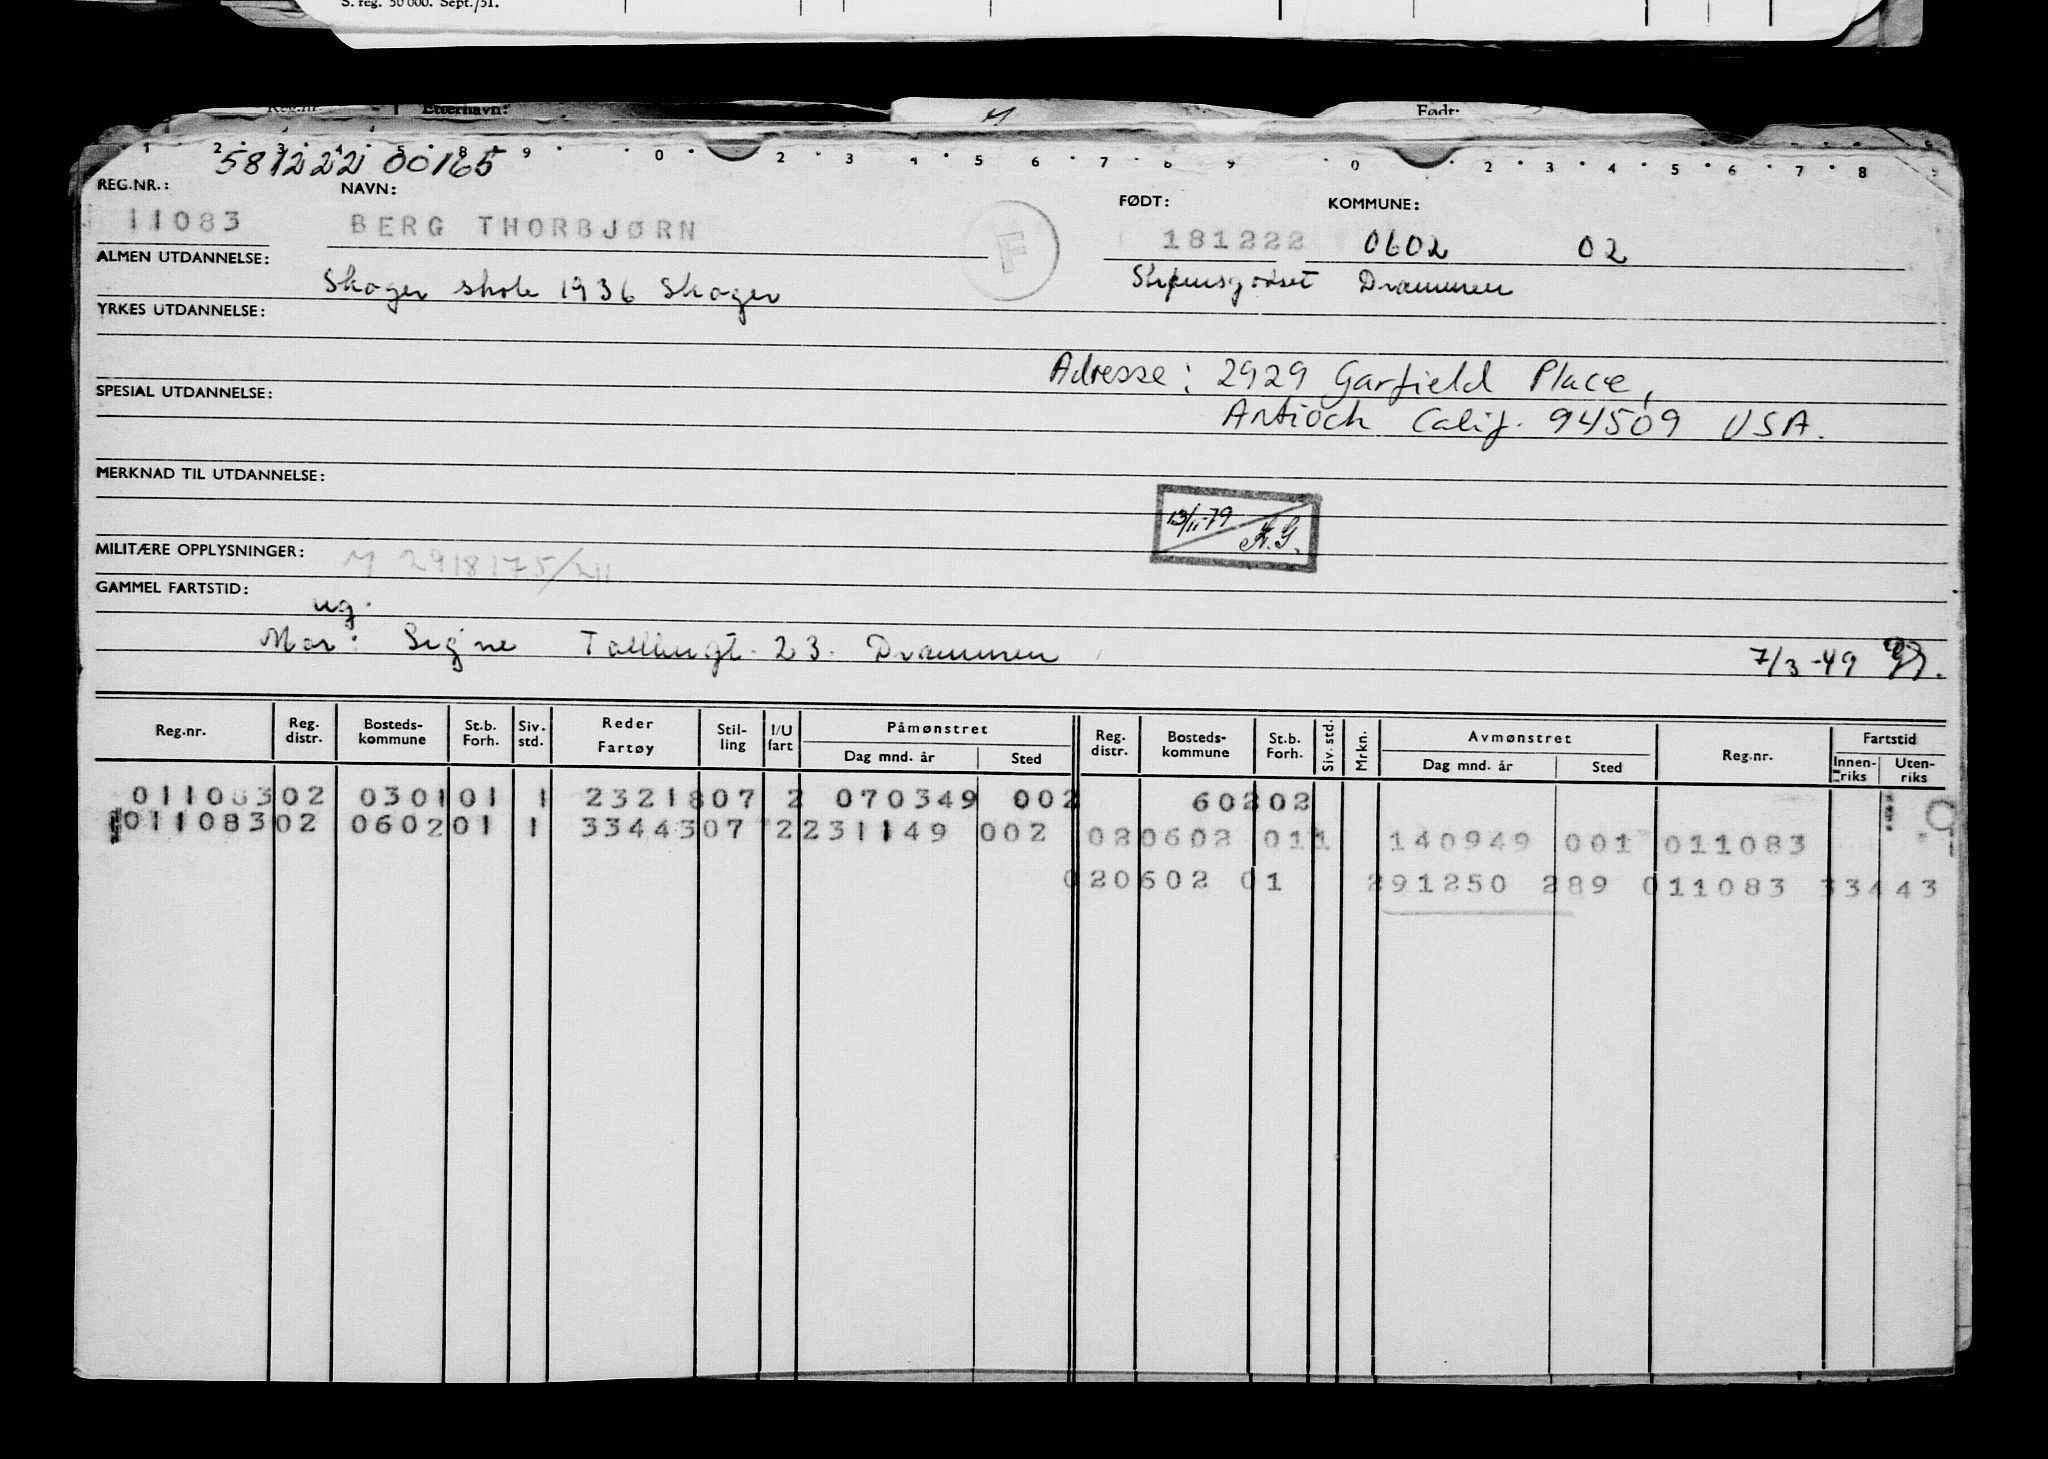 S. reg. 50 000. Sept./51.
Etterhavn:
Født:
581222 00165
REG.NR.:
NAVN:
FØDT:
KOMMUNE:
11083
BERG THORBJØRN
F
181222
0602
02
ALMEN UTDANNELSE:
Skoger skole 1936 Skoger
Drammen
YRKES UTDANNELSE:
Adresse: 2929 Garfield Place,
SPESIAL UTDANNELSE:
Antioch Calif. 94509 USA.
MERKNAD TIL UTDANNELSE:
13/11-79
A.G.
MILITÆRE OPPLYSNINGER:
M 2918175/211
GAMMEL FARTSTID:
ug.
Mor: Signe Tollbugt. 23. Drammen
7/3-49
Reg.nr. Reg. distr. Bosteds-kommune St.b. Forh. Siv. std. Reder Fartøy Stil-ling I/U fart Påmønstret Dag mnd. år Sted Reg. distr. Bosteds-kommune St.b. Forh. Siv. std. Mrkn. Avmønstret Dag mnd. år Sted Reg.nr. Fartstid Innen-riks Uten-riks
011083 02 0301 01 1 23218 07 2 070349 002 602 02
011083 02 0602 01 1 33443 07 2 231149 002 02 0602 01 1 140949 001 011083
02 0602 01 291250 289 011083 33443